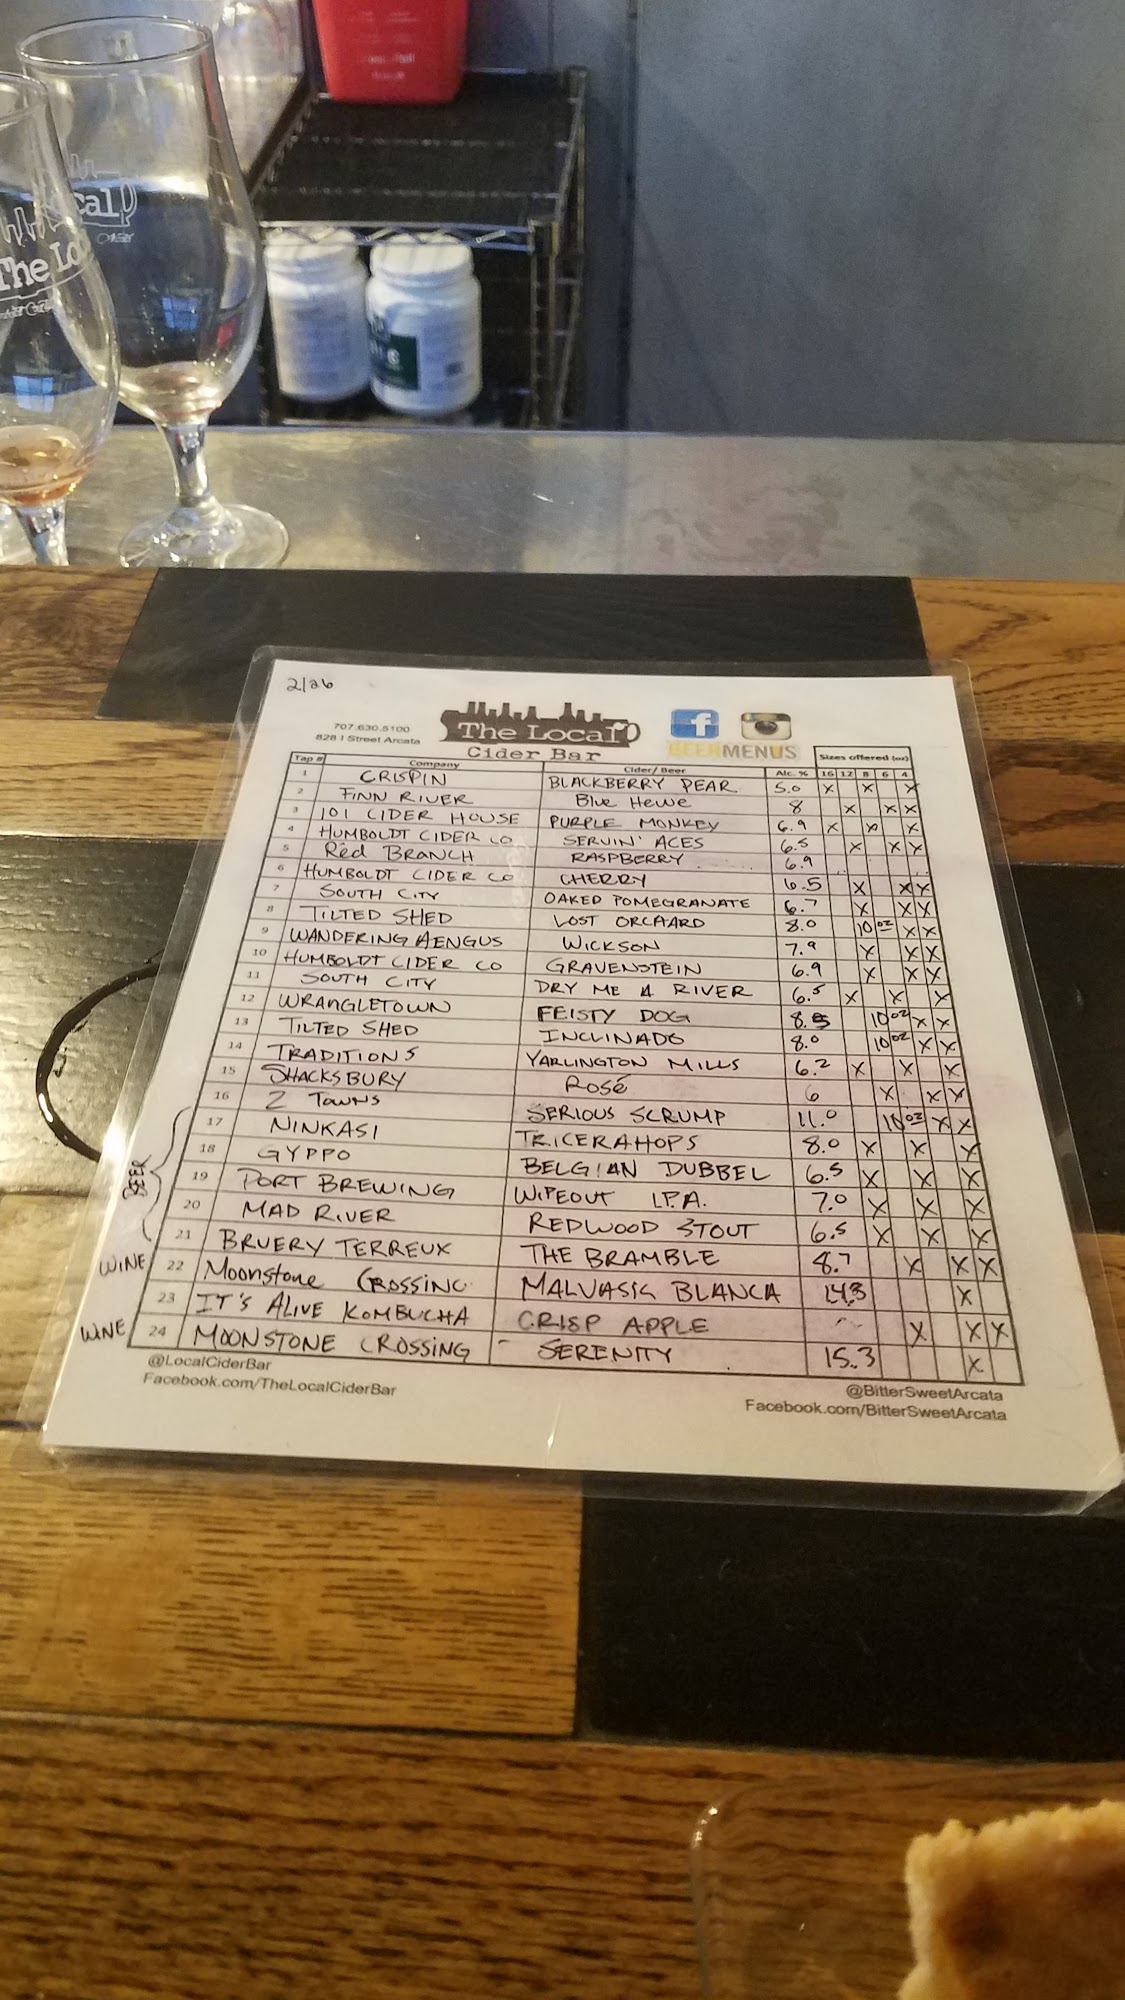 cal
The Lo
2/26
707.630.5100
828 I Street Arcata
The Local
Cider Bar
f
BEERMENUS
Tap # Company Cider/Beer Alc. % Sizes offered (oz)
16 12 8 6 4
1 CRISPIN BLACKBERRY PEAR 5.0 X X X
2 FINN RIVER Blue Hewe 8 X X X
3 101 CIDER HOUSE PURPLE MONKEY 6.9 X X X
4 HUMBOLDT CIDER CO SERVIN' ACES 6.5 X X X
5 Red BRANCH RASPBERRY 6.9
6 HUMBOLDT CIDER CO CHERRY 6.5 X X X
7 SOUTH CITY OAKED POMEGRANATE 6.7 X X X
8 TILTED SHED LOST ORCHARD 8.0 10 oz X X
9 WANDERING AENGUS WICKSON 7.9 X X X
10 HUMBOLDT CIDER CO GRAVENSTEIN 6.9 X X X
11 SOUTH CITY DRY ME A RIVER 6.5 X X X
12 WRANGLETOWN FEISTY DOG 8.5 10 oz X X
13 TILTED SHED INCLINADO 8.0 10 oz X X
14 TRADITIONS YARLINGTON MILLS 6.2 X X X
15 SHACKSBURY ROSÉ 6 X X X
16 2 TOWNS SERIOUS SCRUMP 11.0 10 oz X X
BEER
17 NINKASI TRICERAHOPS 8.0 X X X
18 GYPPO BELGIAN DUBBEL 6.5 X X X
19 PORT BREWING WIPEOUT I.P.A. 7.0 X X X
20 MAD RIVER REDWOOD STOUT 6.5 X X X
21 BRUERY TERREUX THE BRAMBLE 8.7 X X X
WINE 22 Moonstone CROSSING MALVASIA BLANCA 14.8 X
23 IT'S ALIVE KOMBUCHA CRISP APPLE X X X
WINE 24 MOONSTONE CROSSING SERENITY 15.3 X
@LocalCiderBar @BitterSweetArcata
Facebook.com/TheLocalCiderBar Facebook.com/BitterSweetArcata